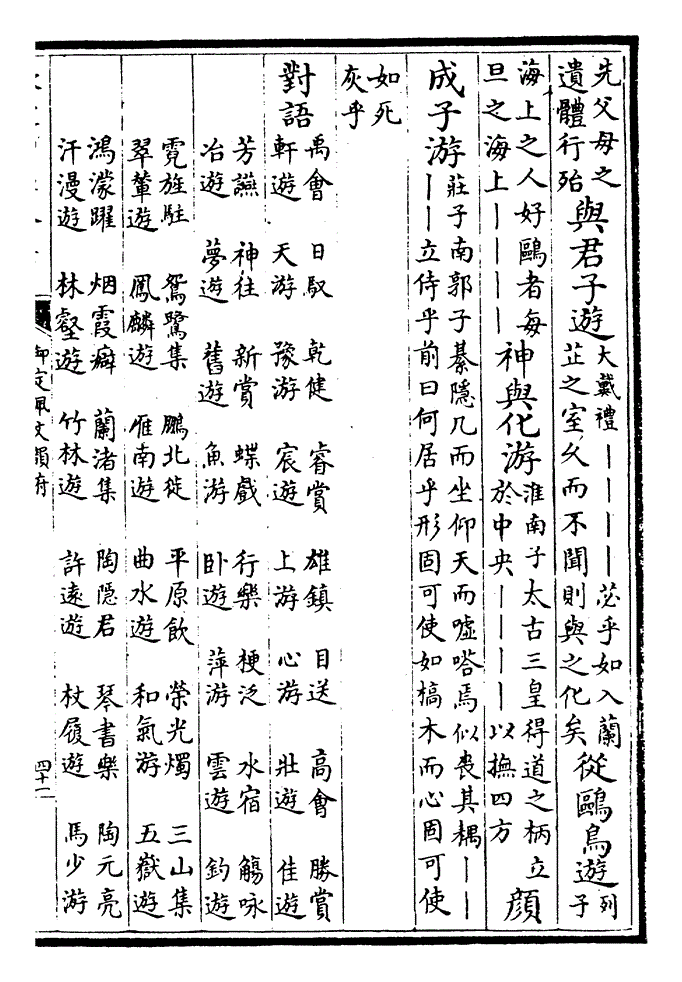 先父母之
遺體行殆
與君子遊
大戴禮————苾乎如入蘭
芷之室乆而不聞則與之化矣
從鷗鳥遊
列
子
海上之人好鷗者每
旦之海上————
神與化游
淮南子太古三皇得道之柄立
於中央————以撫四方
顔
成子游
莊子南郭子綦隱几而坐仰天而嘘嗒焉似喪其耦——
——立侍乎前曰何居乎形固可使如槁木而心固可使
如死
灰乎
對語
禹會 日馭 乾健 睿賞 雄鎮 目送 高會 勝賞
軒遊 天游 豫游 宸遊 上游 心游 壯遊 佳遊
芳讌 神往 新賞 蝶戲 行樂 梗泛 水宿 觴咏
冶遊 夢遊 舊遊 魚游 卧遊 萍游 雲遊 釣遊
霓旌駐 鴛鷺集 鵬北徙 平原飲 榮光燭 三山集
翠輦遊 鳳麟遊 雁南遊 曲水遊 和氣游 五嶽遊
鴻濛躍 烟霞癖 蘭渚集 陶隠君 琴書樂 陶元亮
汗漫遊 林壑遊 竹林遊 許遠遊 杖履遊 馬少游
御定佩文韻府
四十二